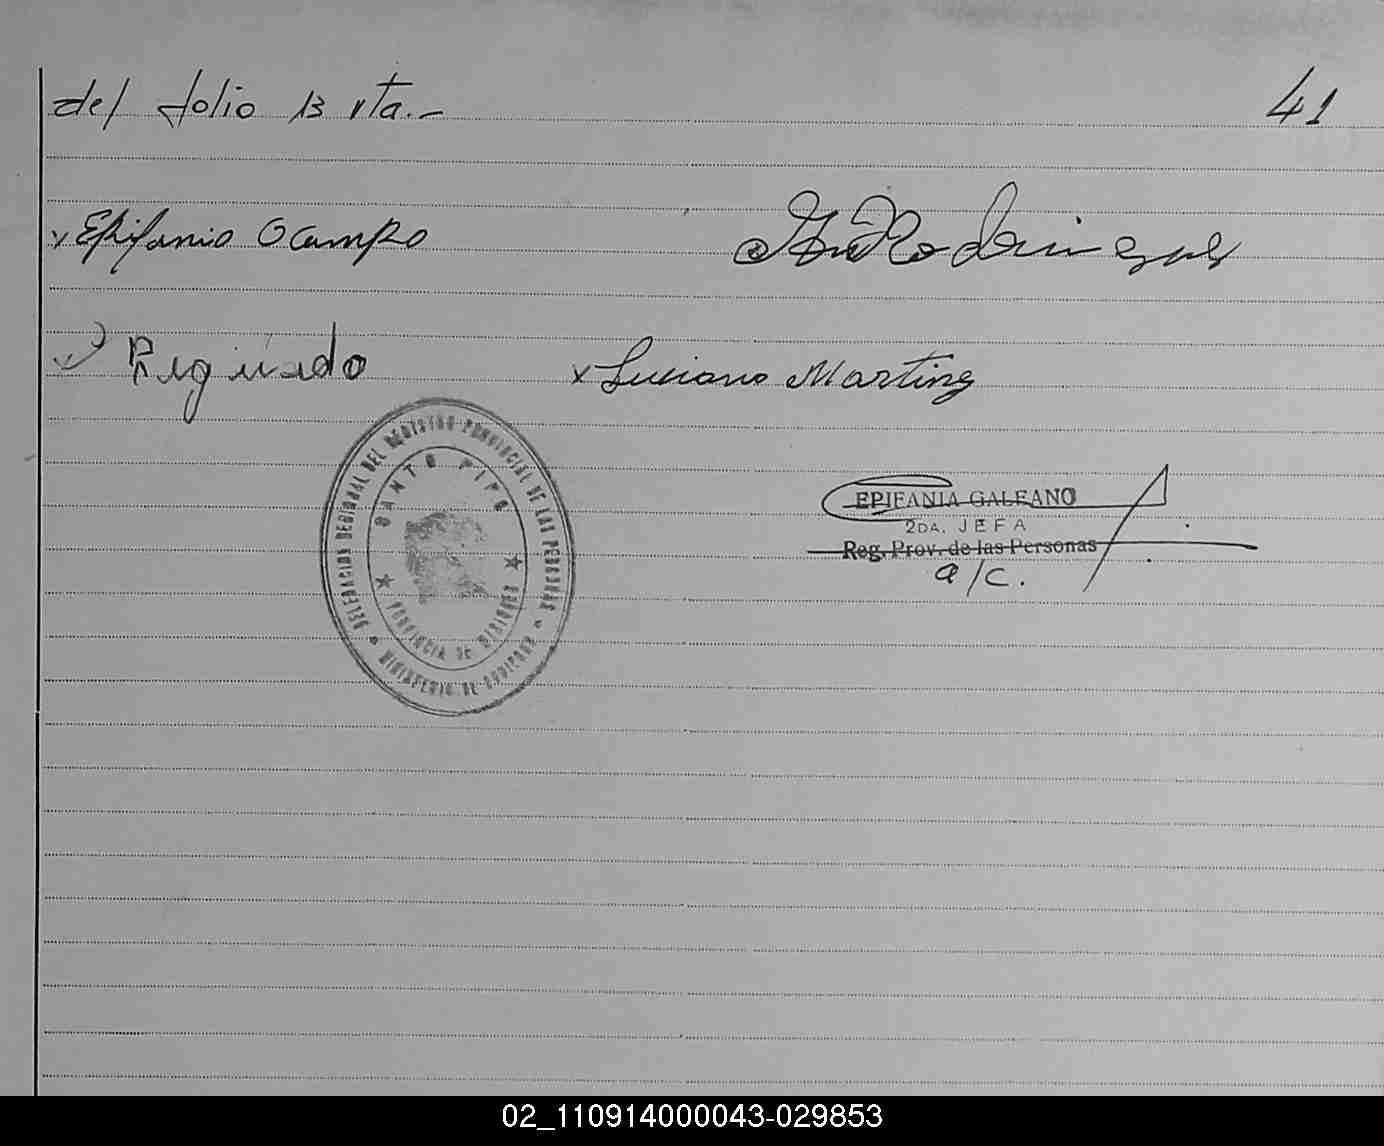 del folio 13 vta.-
41
x Epifanio Ocampo
Rodriguez
x Luciano Martinez
DELEGACION REGIONAL DEL REGISTRO PROVINCIAL DE LAS PERSONAS
SANTO PIPO
PROVINCIA DE MISIONES
MINISTERIO DE GOBIERNO
EPIFANIA GALEANO
2DA. JEFA
Reg. Prov. de las Personas
a/c.
02_110914000043-029853